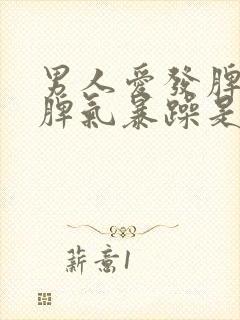 男人愛發脾
脾氣暴躁是
薪意1